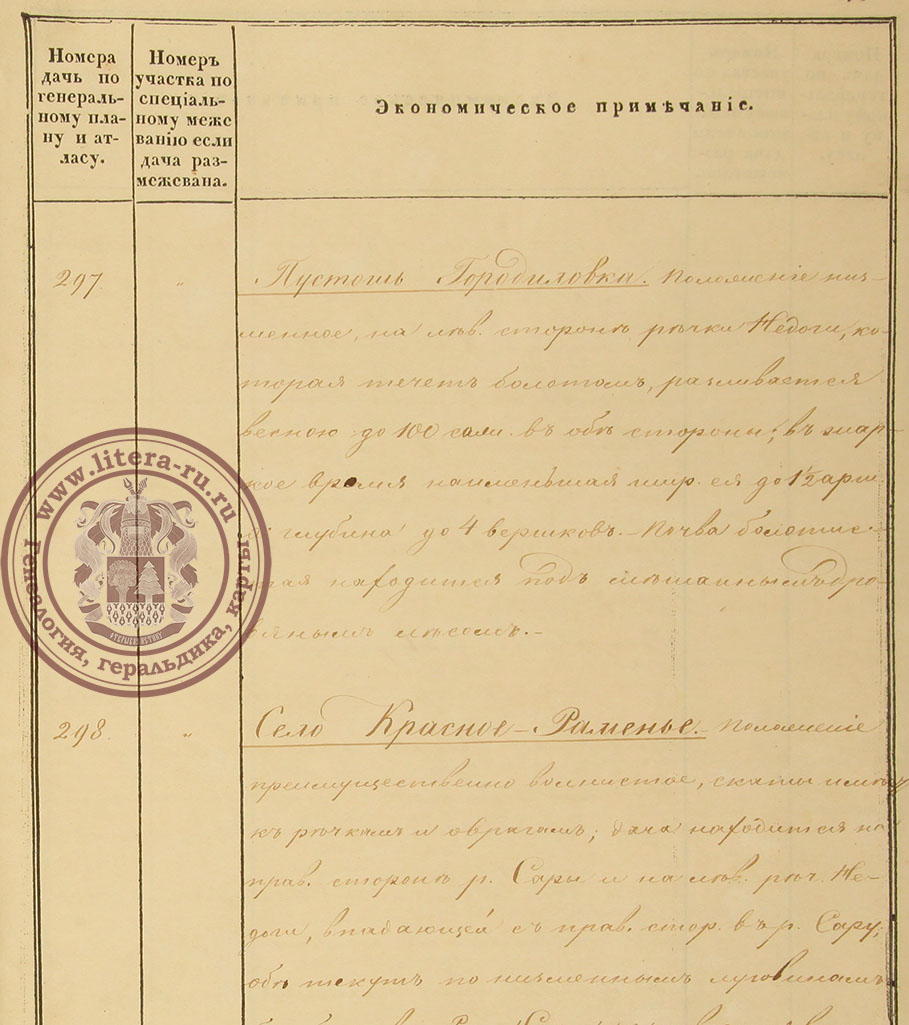 Номера
дачъ по
генераль-
ному пла-
ну и ат-
ласу.
Номеръ
участка по
спеціаль-
ному меже
ванію если
дача раз-
межевана.
Экономическое примѣчаніе.
297. "
Пустошь Городиловка. Положеніе низ-
менное, на лѣв. сторонѣ рѣчки Недоги, ко-
торая течетъ болотомъ, разливается
весною до 100 саж. въ обѣ стороны; въ жар-
кое время наименьшая шир. ея до 1½ арш.
а глубина до 4 вершковъ. – Почва болотис-
тая находится подъ смѣшаннымъ дро-
вянымъ лѣсомъ. –
298. "
Село Красное-Раменье. – Положеніе
преимущественно волнистое, скаты имѣетъ
къ рѣчкамъ и оврагамъ; дача находится на
прав. сторонѣ р. Сары и на лѣв. рѣч. Не-
доги, впадающей съ прав. стор. въ р. Сару;
обѣ текутъ по низменнымъ луговинамъ
www.litera-ru.ru
Генеалогия, геральдика, карты.